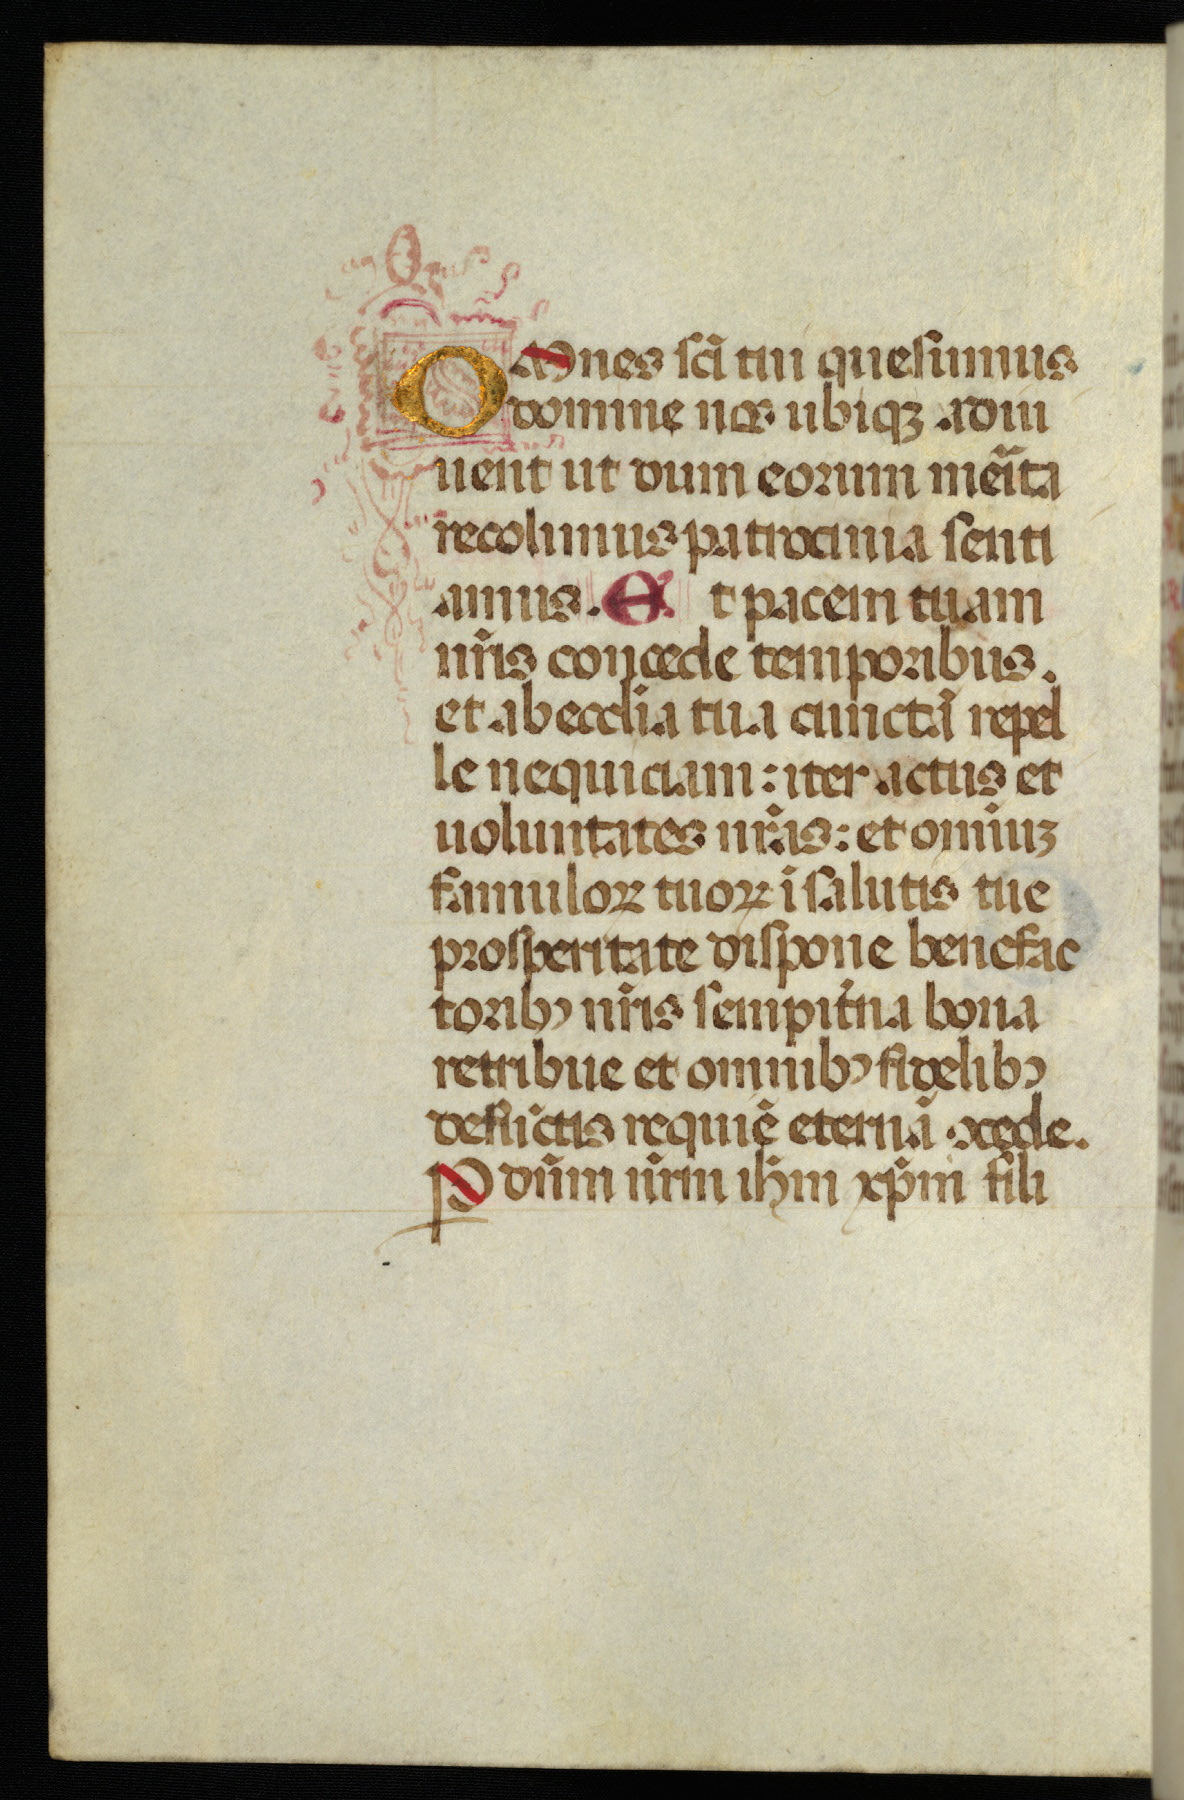 Omnes sc̃i tui quesumus
domine nos ubiqꝫ adiu
uent ut dum eorum mẽita
recolimus patrocinia senti
amus. Et pacem tuam
nr̃is concede temporibus.
et ab ecclia tua cunctã repel
le nequiciam: iter actus et
uoluntates nr̃as: et omĩuꝫ
famuloꝝ tuoꝝ ĩ salutis tue
prosperitate dispone benefac
toribꝰ nr̃is sempit̃na bona
retribue et omnibꝰ fidelibꝰ
defũctis requiẽ eternã ꝯcede.
P dñm nr̃m ihm xp̃m fili